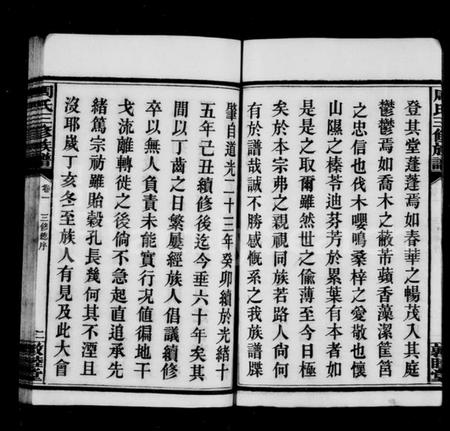 登其堂蓬蓬焉如春華之暢茂入其庭
鬱鬱焉如喬木之蔽芾蘋香藻潔筐筥
之忠信也伐木嚶鳴桑梓之愛敬也懷
山隰之榛苓迪芬芳於累葉有本者如
是是之取爾雖然世之偸薄至今日極
矣於本宗弗之親視同族若路人尙何
有於譜哉誠不勝感慨系之我族譜牒
肇自道光二十三年癸卯續於光緒十
五年己丑續修後迄今垂六十年矣其
間以丁齒之日繁屢經族人倡議續修
卒以無人負責未能實行况値徧地干
戈流離轉徙之後倘不急起直追承先
緒篤宗祊雖貽穀孔長幾何其不湮且
沒耶嵗丁亥冬至族人有見及此大會
周氏三修族譜
卷一
三修總序
二
敦睦堂